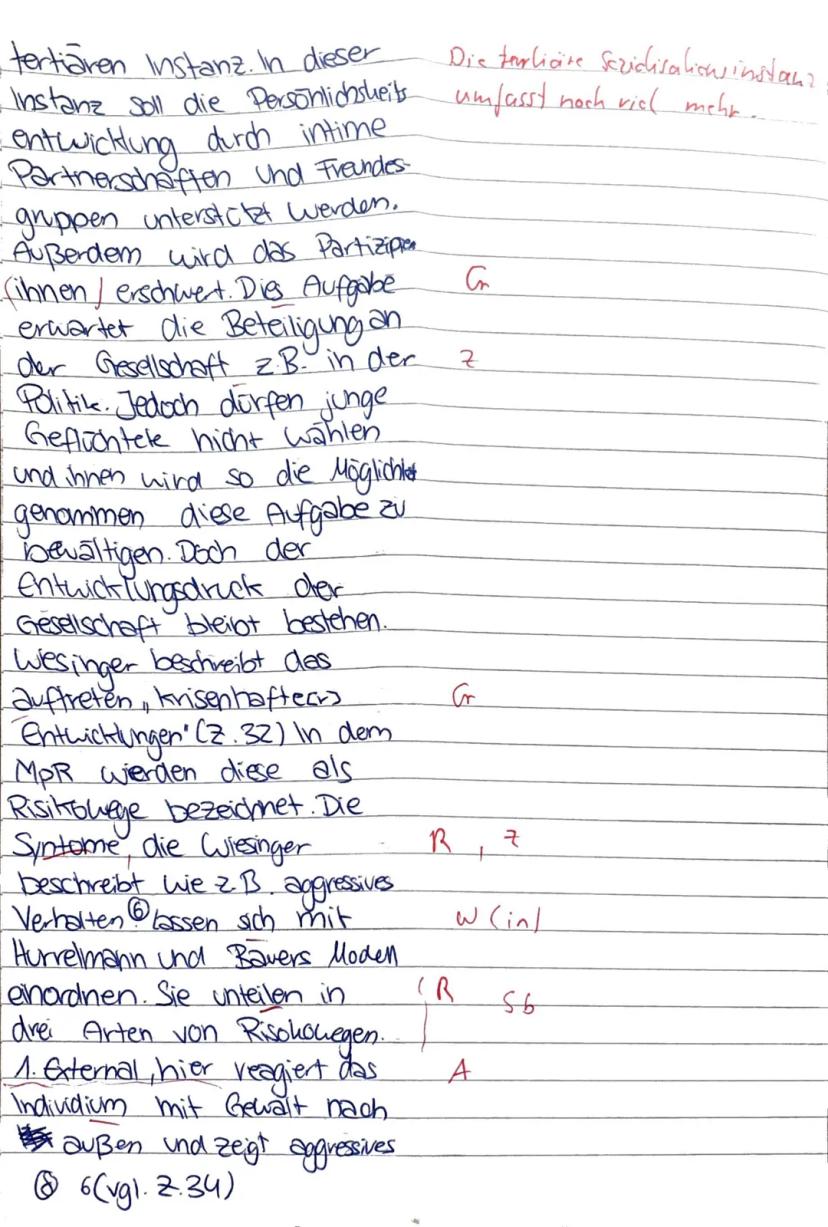 tertiären Instanz. In dieser
Die tertiäre Sozialisationsinstanz
Instanz soll die Persönlichkeits
umfasst noch viel mehr.
entwicklung durch intime
Partnerschaften und Freundes-
gruppen unterstützt werden.
Außerdem wird das Partizipieren
(ihnen) erschwert. Dies Aufgabe
Gr
erwartet die Beteiligung an
der Gesellschaft z.B. in der
Z
Politik. Jedoch dürfen junge
Geflüchtete nicht wählen
und ihnen wird so die Möglichkeit
genommen diese Aufgabe zu
bewältigen. Doch der
Entwicklungsdruck der
Gesellschaft bleibt bestehen.
Wiesinger beschreibt das
auftreten „krisenhafte(r)
Gr
Entwicklungen" (Z.32) In dem
MpR werden diese als
Risikowege bezeichnet. Die
Syntome, die Wiesinger
R, Z
beschreibt wie z.B. aggressives
Verhalten ⑥ lassen sich mit
W (in)
Hurrelmann und Bauers Modell
einordnen. Sie unteilen in
R Sb
drei Arten von Risokowegen.
1. External, hier reagiert das
A
Individium mit Gewalt nach
außen und zeigt aggressives
⑧ 6(vgl. Z.34)